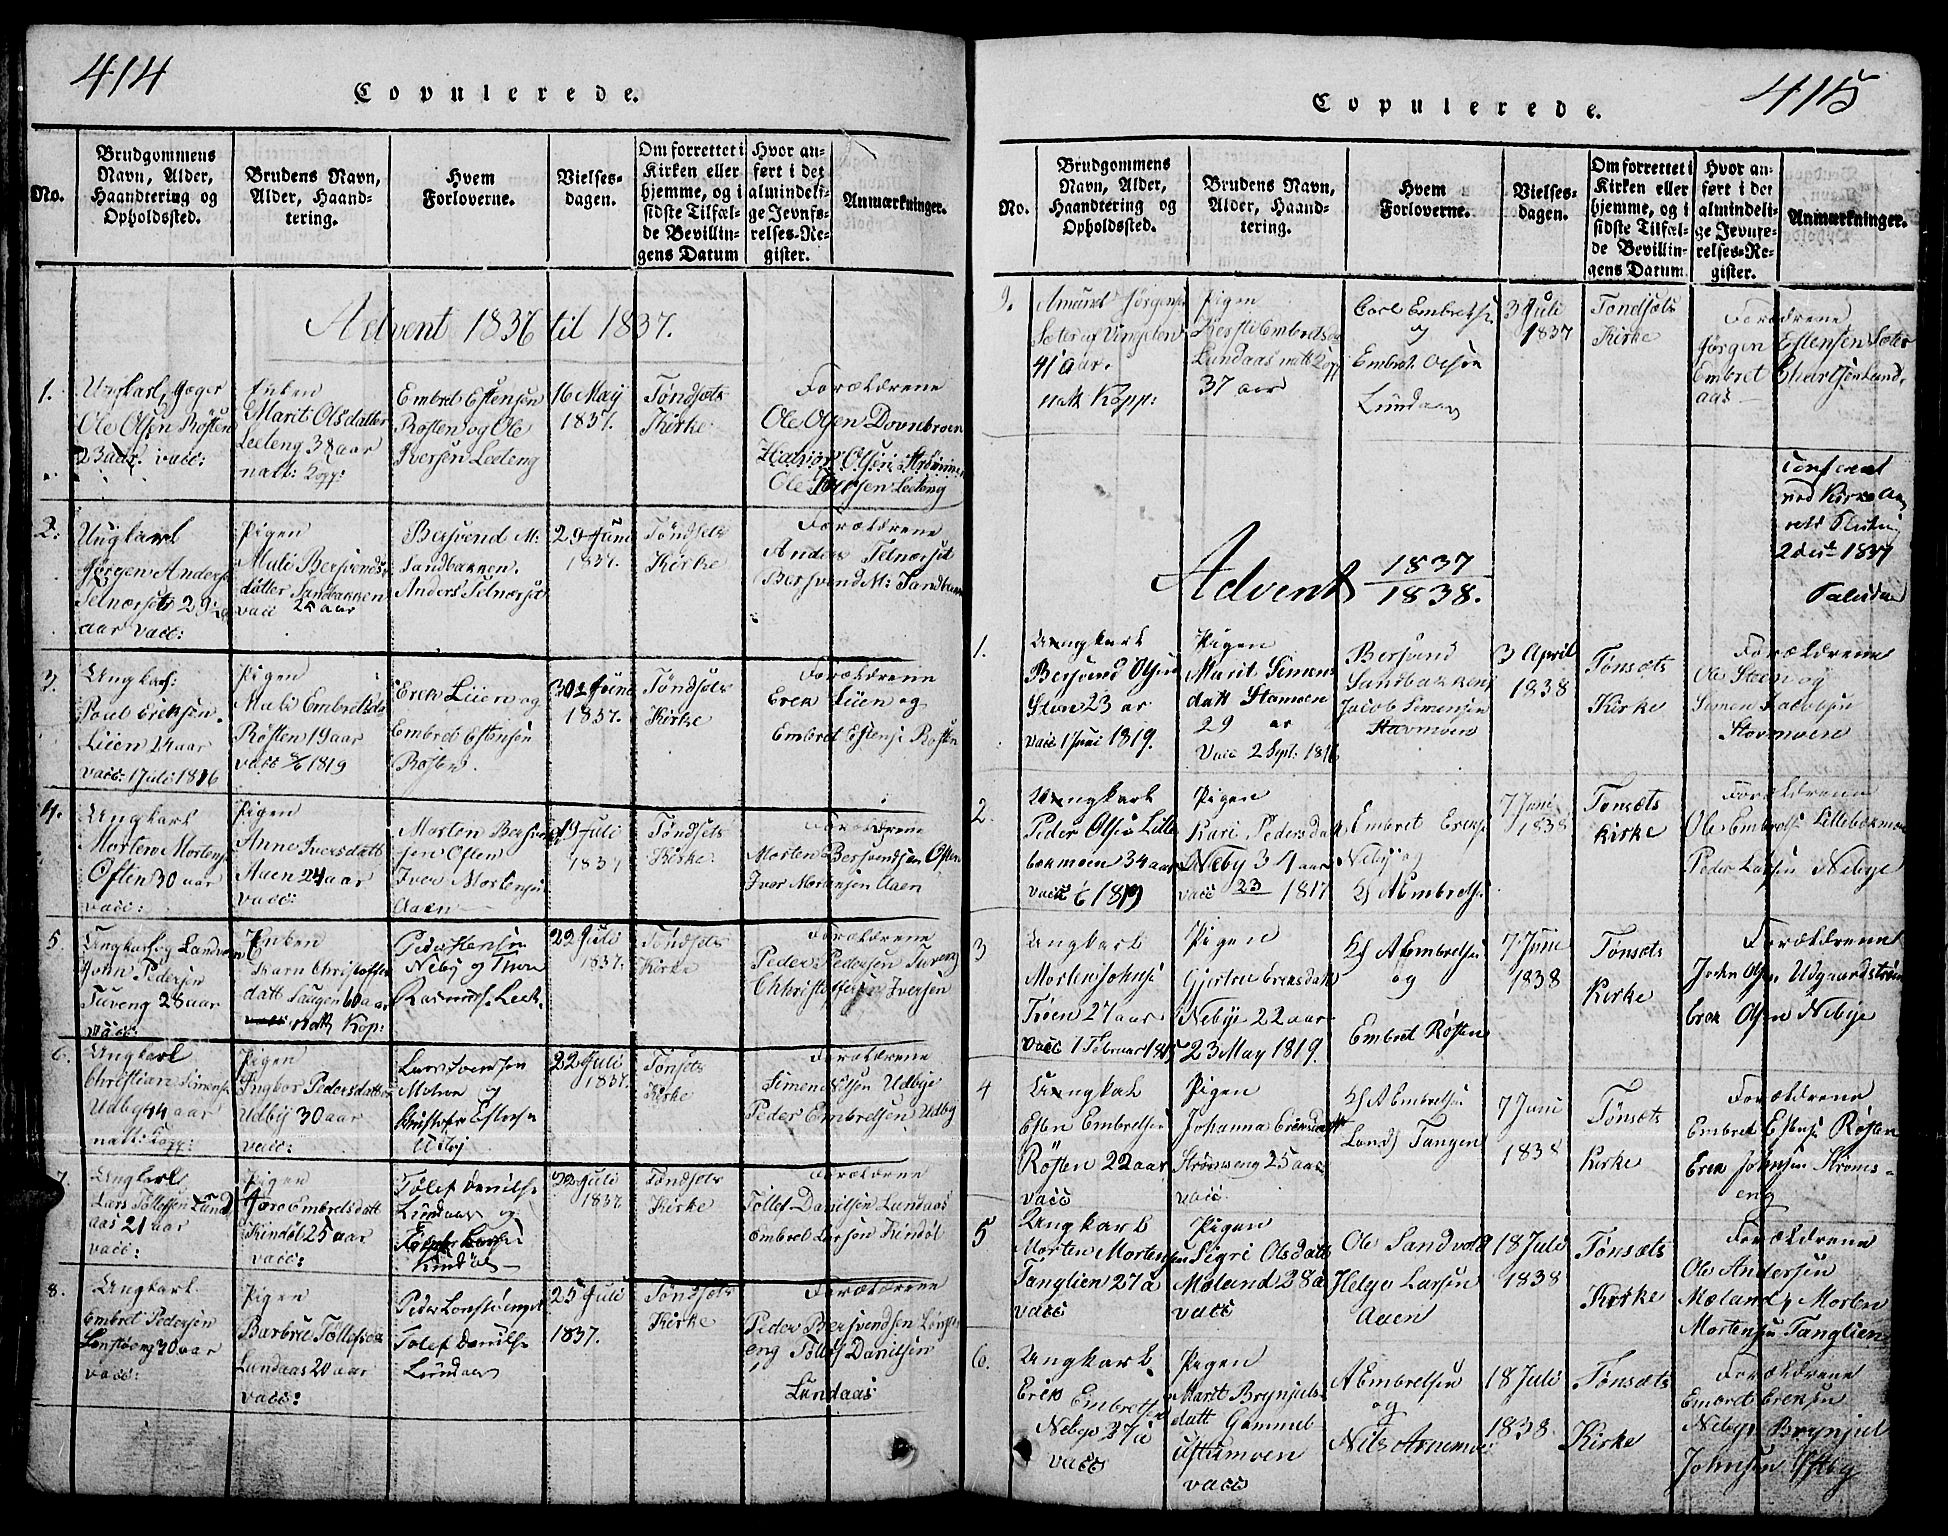 414
Copulerede.
No.
Brudgommens
Navn, Alder,
Haandtering og
Opholdssted.
Brudens Navn,
Alder, Haand-
tering.
Hvem
Forloverne.
Vielses-
dagen.
Om forrettet i
Kirken eller
hjemme, og i
sidste Tilfæl-
de Bevillin-
gens Datum
Hvor an-
ført i det
almindeli-
ge Jevnfø-
relses-Re-
gister.
Anmærkninger.
Advent 1836 til 1837.
1.
Ungkarl, Jæger
Ole Olsen Røsten
23 aar. vacc:
Enken
Marit Olsdatter
Leeteng 38 aar
natt: Kopp:
Embret Estensen
Røsten og Ole
Iversen Leeteng
16 May
1837.
Tøndsets
Kirke
Forældrene
Ole Olsen Dovnbroen
Ole Iversen Leeteng
2.
Ungkarl
Jørgen Anders
Telnæset 29
aar vacc:
Pigen
Mali Bersvends
datter Sandbakken
vacc 25 aar
Bersvend M:
Sandbakken.
Anders Telnæset
29 Juni
1837.
Tøndsets
Kirke
Forældrene
Anders Telnæset
Bersvend M: Sandbakk
3.
Ungkarl:
Poul Eriksen.
Lien 24 aar
vacc: 1 Juli 1816
Pigen
Mali Embretsdr
Røsten 19 aar
vacc 1819
Erek Lüen og
Embret Estensen
Røsten.
30 Juni
1837.
Tøndsets
Kirke
Forældrene
Erek Lüen og
Embret Estense Røsten
4.
Ungkarl
Morten Mortens
Østen 30 aar
vacc:
Pigen
Anne Iversdatt
Aaen 24 aar
vacc:
Morten Bersvend
sen Østen
Iver Mortensen
Aaen
19 Juli
1837
Tøndsets
Kirke.
Forældrene
Morten Bersvendsen Østen
Iver Mortensen Aaen
5.
Ungkarl og Landværn
John Pedersen
Tuveng 28 aar
vacc:
Enken
Karn Christofers
datt Haugen 60 aar
natt Kop:
Peder Stensen
Neby og Thore
Rasmuss. Leet.
22 Juli
1837.
Tøndsets
Kirke
Forældrene
Peder Pedersen Tuveng
Christoffer Iversen
6.
Ungkarl
Christian Simens
Udby 44 aar
natt: Kopp:
Pigen
Ingbor Pedersdatter
Udbÿ 30 aar
vacc:
Lars Svendsen
Motroe og
Christofer Estense
Udbÿ
22 Juli
1837.
Tønsets
Kirke
Forældrene
Simen Nilsen Udbÿe
Peder Embretsen Udbÿ
7.
Ungkarl
Lars Tollefsen Lund
aas 21 aar
vacc:
Pigen
Goro Embretsdatt
Kindøl 25 aar
vacc:
Tolef Danilse
Lundaas og
Kindøl
22 Juli
1837
Tøndsets
Kirke
Forældrene
Tollef Danilsen Lundaas
Embret Larsen Kindøl
8.
Ungkarl.
Embret Pedersen
Lonstøeng 30 aar
vacc:
Pigen
Barbro Tollefsda
Lundaas 20 aar
vacc:
Peder Lonstøenget
Tolef Danilse
Lundaas
25 Juli
1837.
Tøndsets
Kirke.
Forældrene
Peder Bersvendsen Lonst
eng Tollef Danilsen
Lundaas
415
Copulerede.
No.
Brudgommens
Navn, Alder,
Haandtering og
Opholdssted.
Brudens Navn,
Alder, Haand-
tering.
Hvem
Forloverne.
Vielses-
dagen.
Om forrettet i
Kirken eller
hjemme, og i
sidste Tilfæl-
de Bevillin-
gens Datum
Hvor an-
ført i det
almindeli-
ge Jevnfø-
relses-Re-
gister.
Anmærkninger.
9.
Amund Jørgense
Sæter af Vingelen
41 aar.
natt Kopp:
Pigen
Kersti Embretsda
Lundaas natt Kopp
37 aar
Carl Embretse
og
Embret Olsen
Lundaas
3 Juli
1837
Tondsets
Kirke
Forældrene
Jørgen Estensen Sæter
Embret Ehartsen Lund,
aas
Confereret
ved Kirke An
1837
Advent 1837
1838.
1.
Ungkarl
Bersvend Olsen
Steen 23 ar
vacc 1 Juni 1819.
Pigen
Marit Simens
datt Stamoen
29 ar
Vacc 2 Sept. 1816
Bersvend
Sandbakken,
Jacob Simensen
Stavmoen
3 April
1838
Tønsæts
Kirke
Forældrene
Ole Steen og
Simen
Stovmoen
2.
Ungkarl
Peder Olsen Lille
bækmoen 34 aar
vacc 1819
Pigen
Kari Pedersdatt
Neby 34 aar
vacc 23 1817
Embret Erikse
Neby og
A Embretse
7 Juni
1838
Tonsæts
Kirke
Forældrene
Ole Embretse Lillebækmoe
Peder Larsen Nebye
3
Ungkarl
Morten Johnse
Troen 27 aar
vacc 1 Februar 1815
Pigen
Gjertrue Ereksdatt
Nebye 22 aar
23 May 1819.
A Embretsen
og
Embret Røsten
7 Juni
1838
Tønsæts
Kirke
Forældrene
John Olsen Udgaardstrøen
Erek Olsen Nebÿe
4
Ungkal
Esten Embretsen
Røsten 22 aar
vacc
Pigen
Johanna Ereksdatt
Strømseng 25 aar
vacc.
A Embretsen
Tangen
7 Juni
1838
Tønsæts
Kirke
Forældrene
Embret Estense Røsten
Erek Johnsen Strøms-
eng
5
Ungkarl
Morten Mortensen
Tanglien 27 a
vacc
Pigen
Sigri Olsdatt
Moland 28 a
vacc
Ole Sandvold
Helge Larsen
Aaen
18 Juli
1838
Tønsæts
Kirke
Forældrene
Ole Andersen
Mæland, Morten
Mortensen Tanglien
6.
Ungkarl
Erik
Embretsen
Nebye 27 a
vacc
Pigen
Marit Brynjuls
datt Gammel
Ustumoen
vacc
A Embretsen
og
Nils Arnemoe
18 Juli
1838
Tønsæts
Kirke
Forældrene
Embret Ereksen
Nebye Brynjul
Johnsen